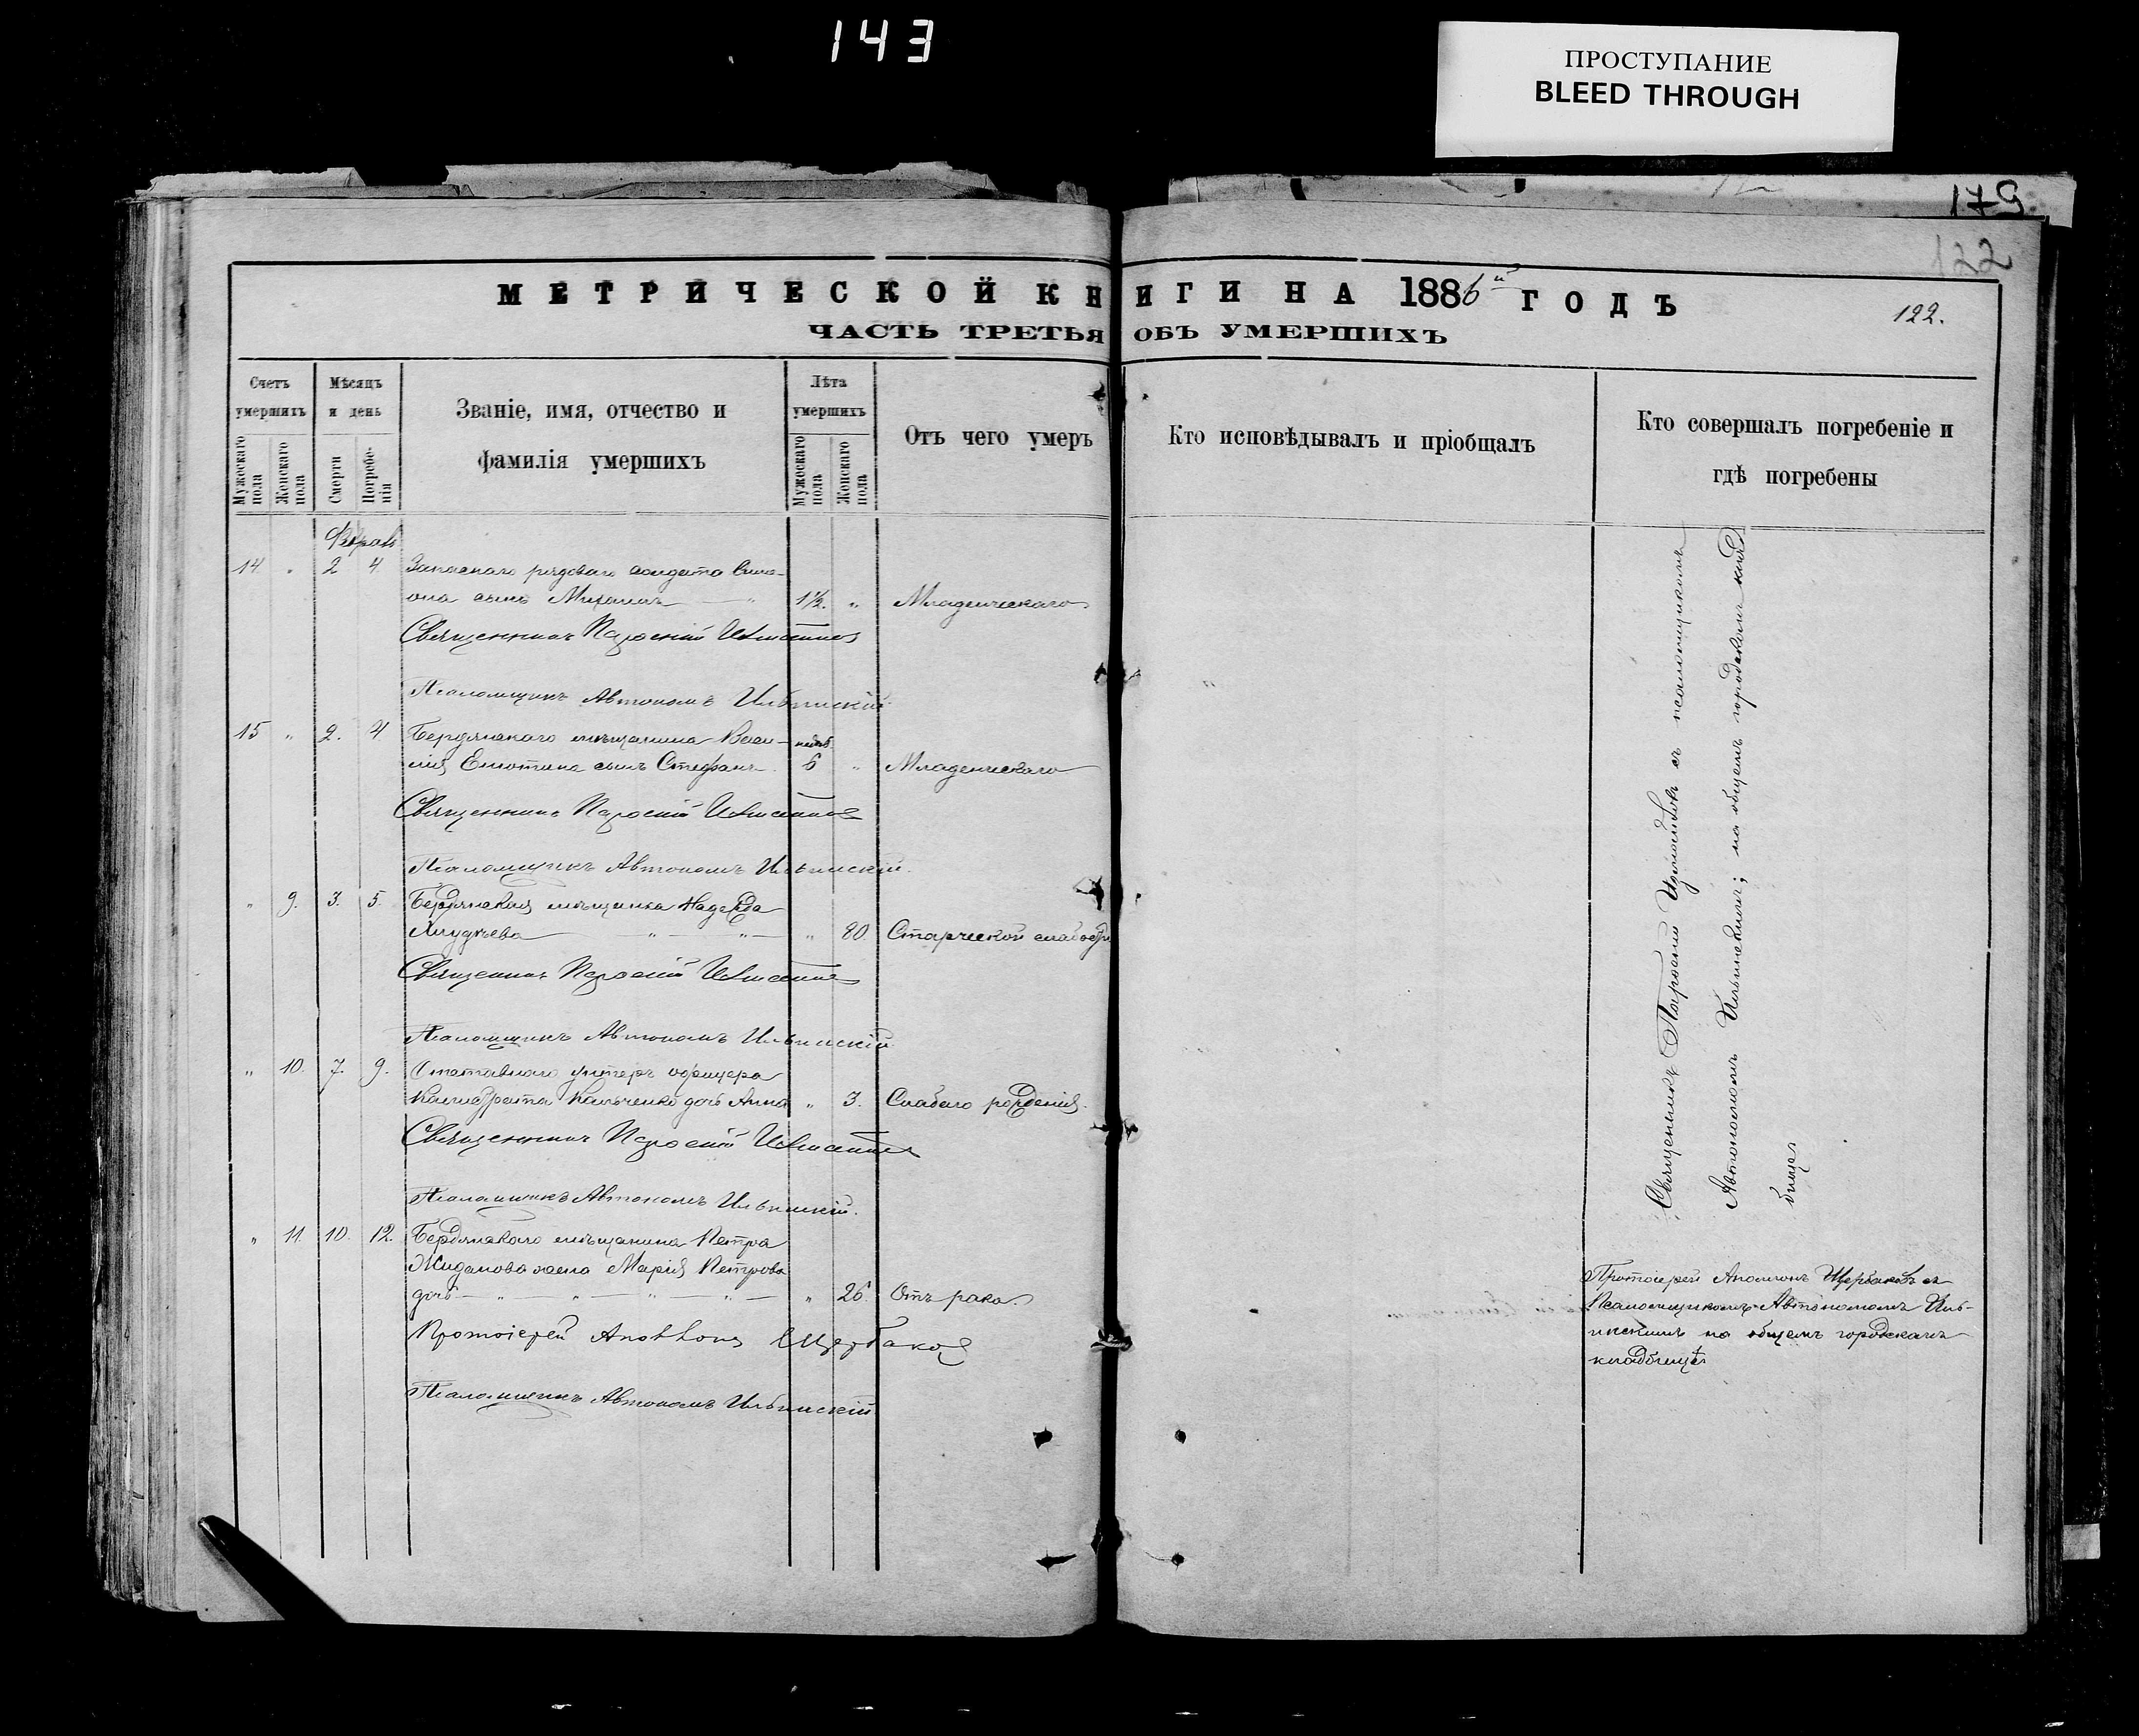 143
ПРОСТУПАНИЕ
BLEED THROUGH
179
122
МЕТРИЧЕСКОЙ КНИГИ НА 1886й ГОДЪ
122.
ЧАСТЬ ТРЕТЬЯ ОБЪ УМЕРШИХЪ
Счетъ умершихъ
Мужескаго пола
Женскаго пола
Мѣсяцъ и день
Смерти
Погребенія
Званіе, имя, отчество и
фамилія умершихъ
Лѣта умершихъ
Мужескаго пола
Женскаго пола
Отъ чего умеръ
Кто исповѣдывалъ и пріобщалъ
Кто совершалъ погребеніе и
гдѣ погребены
14 " 2 4 Запаснаго рядоваго солдата Симе-
она сынъ Михаилъ 1½. " Младенческаго
Священникъ
Псаломщикъ Автономъ Ильинскій
15 " 2. 4 Бердянскаго мѣщанина Васи-
лія сынъ Стефанъ 6 " Младенческаго
Священникъ
Псаломщикъ Автономъ Ильинскій.
" 9. 3. 5. Бердянская мѣщанка Надежда
" 80. Старческой слабости
Священникъ
Псаломщикъ Автономъ Ильинскій
" 10. 7. 9. Отставнаго унтеръ офицера
дочь Анна " 3. Слабаго рожденія.
Священникъ
Псаломщикъ Автономъ Ильинскій.
" 11. 10. 12. Бердянскаго мѣщанина Петра
Жиданова жена Марія Петрова
дочь " 26. Отъ рака.
Протоіерей Аполлонъ Щербаковъ
Псаломщикъ Автономъ Ильинскій
Священникъ съ псаломщикомъ
Автономомъ Ильинскимъ; на общемъ городскомъ клад
бищѣ
Протоіерей Аполлонъ Щербаковъ съ
Псаломщикомъ Автономомъ Иль-
инскимъ на общемъ городскомъ
кладбищѣ